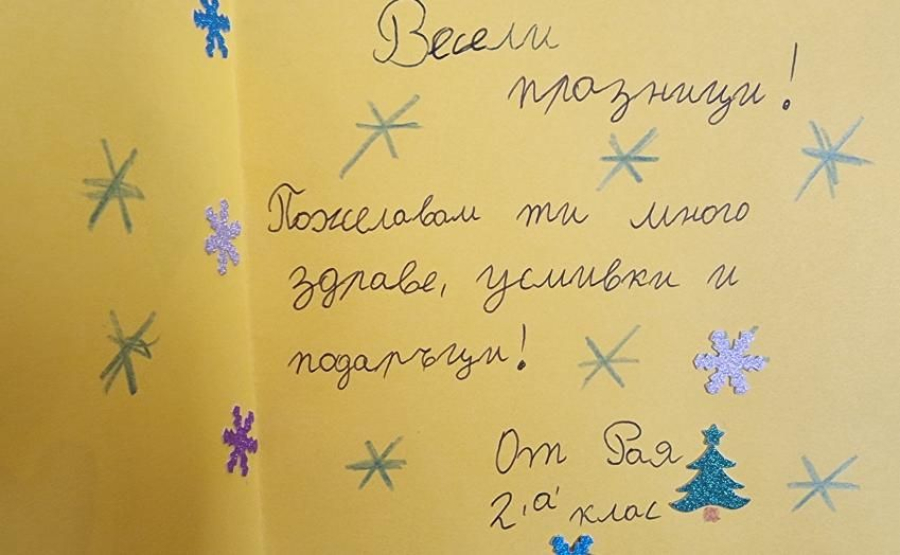 Весели
празници!
Пожелавам ти много
здраве, усмивки и
подаръци!
От Рая
2 'а' клас